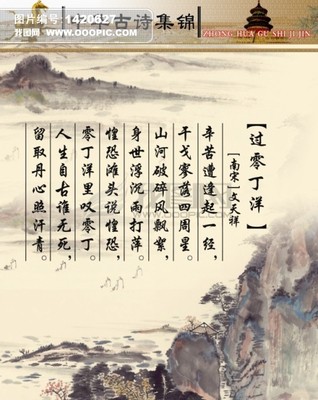 图片编号: 1420627
我图网 www.OOOPIC.com
古诗集锦
ZHONG HUA GU SHI JI JIN
【过零丁洋】
[南宋]文天祥
辛苦遭逢起一经，
干戈寥落四周星。
山河破碎风飘絮，
身世浮沉雨打萍。
惶恐滩头说惶恐，
零丁洋里叹零丁。
人生自古谁无死，
留取丹心照汗青。